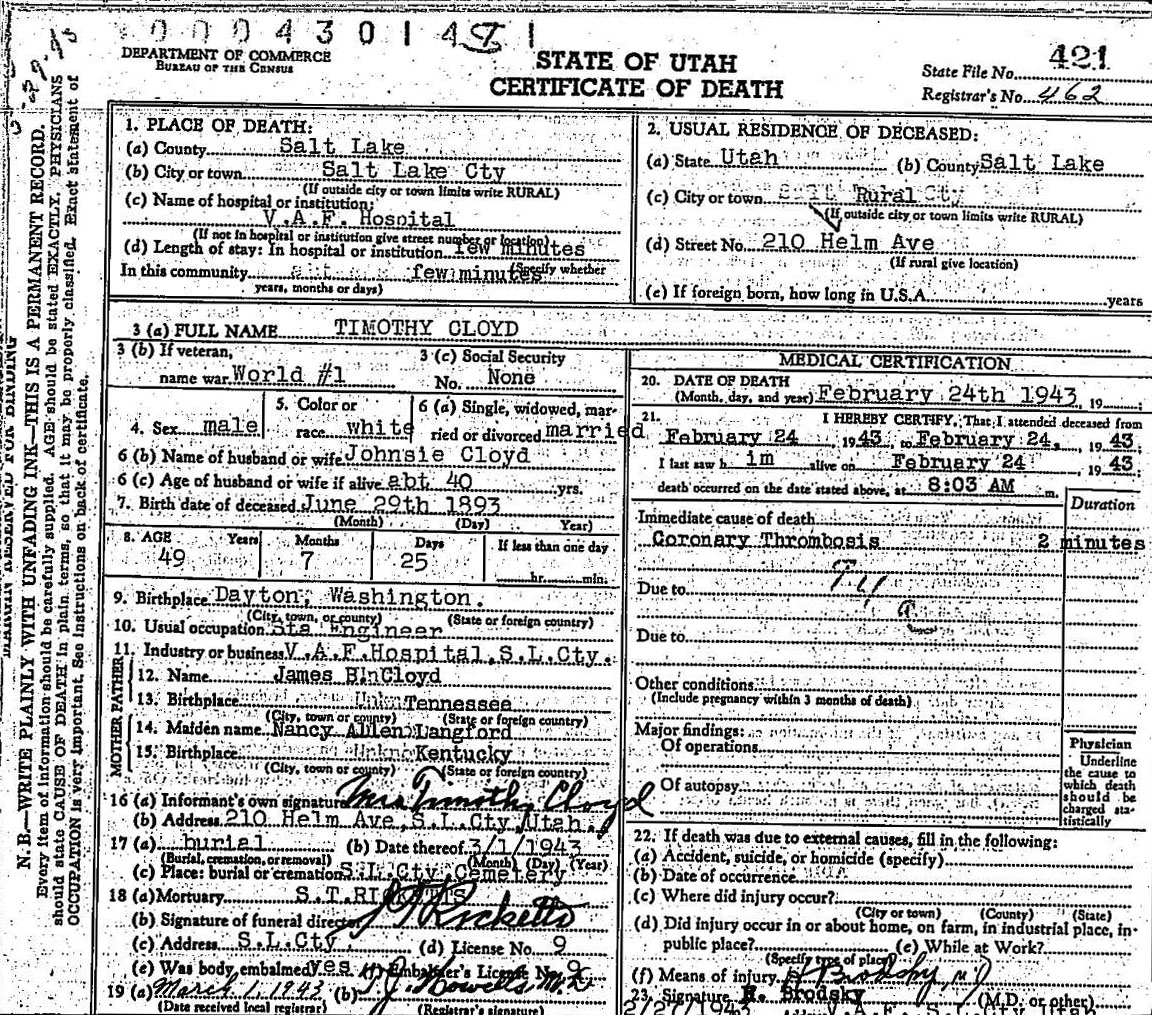 0 0 0 4 3 0 1 4 1
DEPARTMENT OF COMMERCE
BUREAU OF THE CENSUS
STATE OF UTAH
CERTIFICATE OF DEATH
State File No. 421
Registrar's No. 462
N.B.—WRITE PLAINLY WITH UNFADING INK—THIS IS A PERMANENT RECORD.
Every item of information should be carefully supplied. AGE should be stated EXACTLY. PHYSICIANS
should state CAUSE OF DEATH in plain terms, so that it may be properly classified. Exact statement of
OCCUPATION is very important. See instructions on back of certificate.
1. PLACE OF DEATH:
(a) County Salt Lake
(b) City or town Salt Lake Cty
(If outside city or town limits write RURAL)
(c) Name of hospital or institution:
V.A.F. Hospital
(If not in hospital or institution give street number or location)
(d) Length of stay: In hospital or institution few minutes
(Specify whether
In this community few minutes
years, months or days)
2. USUAL RESIDENCE OF DECEASED:
(a) State Utah (b) County Salt Lake
(c) City or town Salt Rural Cty
(If outside city or town limits write RURAL)
(d) Street No. 210 Helm Ave
(If rural give location)
(e) If foreign born, how long in U.S.A. years
3 (a) FULL NAME TIMOTHY CLOYD
3 (b) If veteran, name war World #1
3 (c) Social Security No. None
4. Sex male
5. Color or race white
6 (a) Single, widowed, married or divorced married
6 (b) Name of husband or wife Johnsie Cloyd
6 (c) Age of husband or wife if alive abt 40 yrs.
7. Birth date of deceased June 29th 1893
(Month) (Day) Year)
8. AGE Years Months Days If less than one day
49 7 25 hr. min.
9. Birthplace Dayton, Washington.
(City, town, or county) (State or foreign country)
10. Usual occupation Sta Engineer
11. Industry or business V.A.F. Hospital S.L.Cty.
FATHER
12. Name James B. Cloyd
13. Birthplace Unk Tennessee
(City, town or county) (State or foreign country)
MOTHER
14. Maiden name Nancy Allen Langford
15. Birthplace Unkn Kentucky
(City, town or county) (State or foreign country)
16 (a) Informant's own signature Mrs Timothy Cloyd
(b) Address 210 Helm Ave, S.L.Cty, Utah.
17 (a) burial (b) Date thereof 3/1/1943
(Burial, cremation, or removal) (Month) (Day) (Year)
(c) Place: burial or cremation S.L.Cty. Cemetery
18 (a) Mortuary S.T.RICKETTS
(b) Signature of funeral director S T Ricketts
(c) Address S.L.Cty. (d) License No. 9
(e) Was body embalmed yes (f) Embalmer's License No. 9
19 (a) March 1, 1943 (b) T.J. Howells M.D.
(Date received local registrar) (Registrar's signature)
MEDICAL CERTIFICATION
20. DATE OF DEATH
(Month, day, and year) February 24th 1943, 19
21. I HEREBY CERTIFY, That I attended deceased from
February 24 1943, to February 24, 1943
I last saw h im alive on February 24, 1943
death occurred on the date stated above, at 8:03 AM m.
Duration
Immediate cause of death
Coronary Thrombosis 2 minutes
Due to
Due to
Other conditions
(Include pregnancy within 3 months of death)
Major findings:
Of operations
Of autopsy
Physician
Underline
the cause to
which death
should be
charged sta-
tistically
22. If death was due to external causes, fill in the following:
(a) Accident, suicide, or homicide (specify)
(b) Date of occurrence
(c) Where did injury occur?
(City or town) (County) (State)
(d) Did injury occur in or about home, on farm, in industrial place, in
public place? (e) While at Work?
(Specify type of place)
(f) Means of injury Brodsky, MD
23. Signature H. Brodsky (M.D. or other)
2/27/1943 V.A.F. S.L.Cty Utah